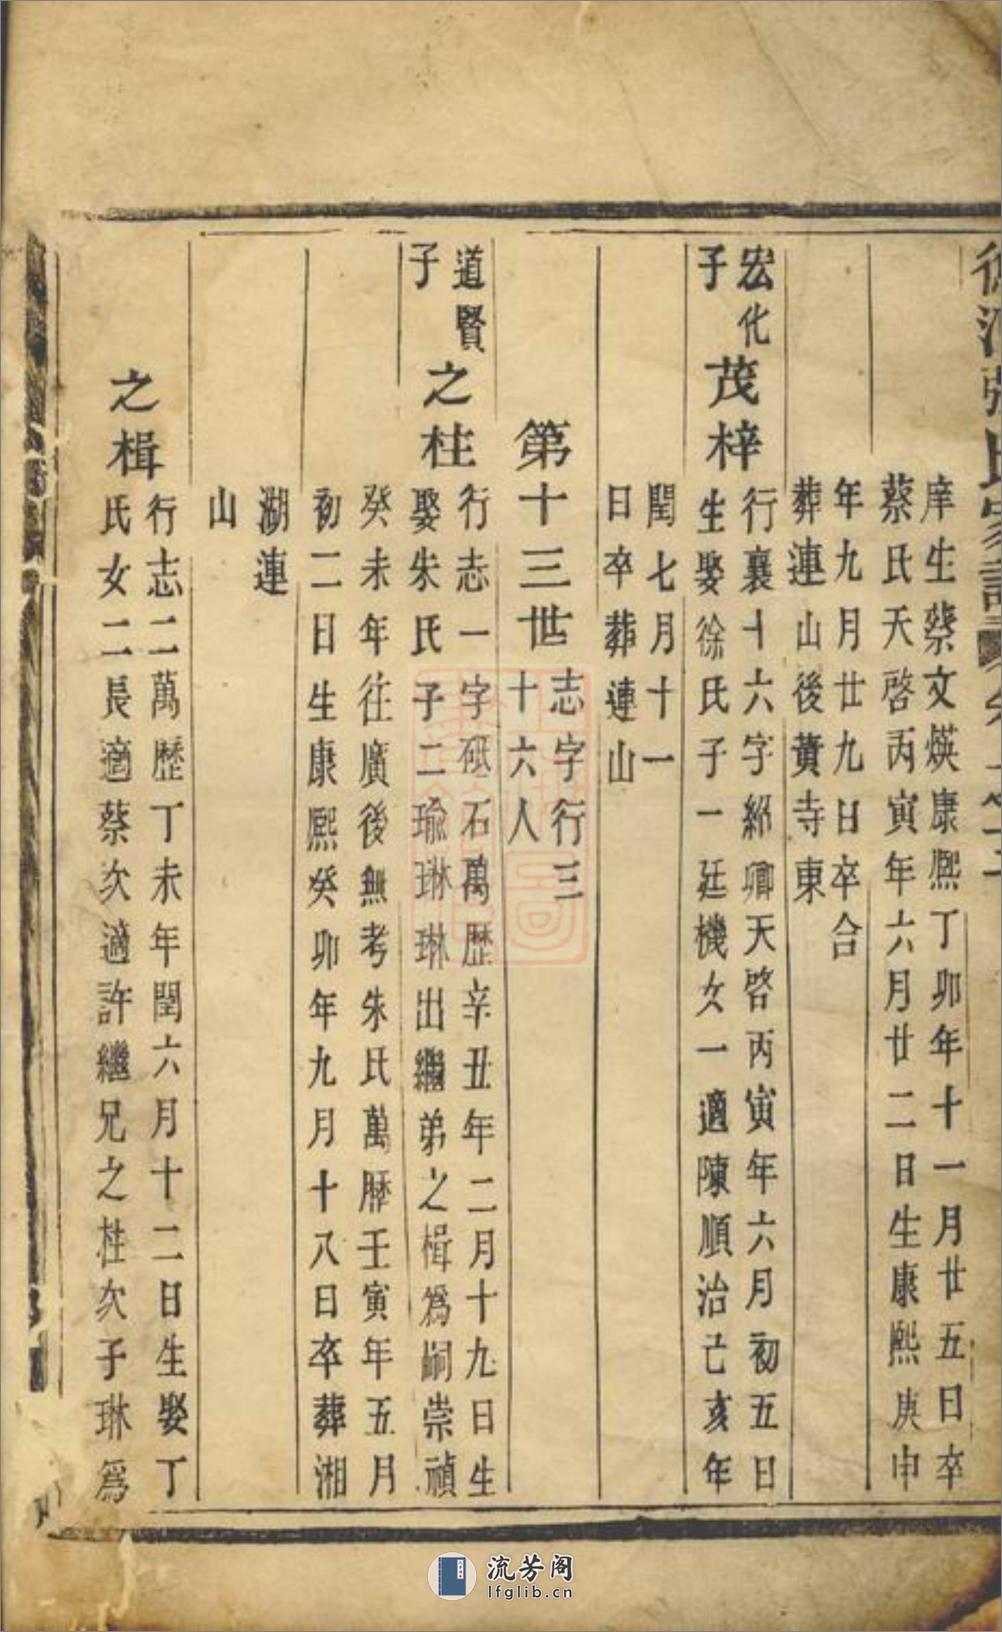 氏家譜
庠生蔡文煐康熙丁卯年十一月廿五日卒
蔡氏天啓丙寅年六月廿二日生康熙庚申
年九月廿九日卒合
葬連山後黃寺東
宏化
子
茂梓
行襄十六字紹卿天啓丙寅年六月初五日
生娶徐氏子一廷機女一適陳順治己亥年
閏七月十一
日卒葬連山
第十三世
志字行三
十六人
道賢
子
之柱
行志一字砥石萬歷辛丑年二月十九日生
娶朱氏子二瑜琳琳出繼弟之楫爲嗣崇禎
癸未年往廣後無考朱氏萬歷壬寅年五月
初二日生康熙癸卯年九月十八日卒葬湘
湖連
山
之楫
行志二萬歷丁未年閏六月十二日生娶丁
氏女二長適蔡次適許繼兄之柱次子琳爲
流芳阁
lfglib.cn